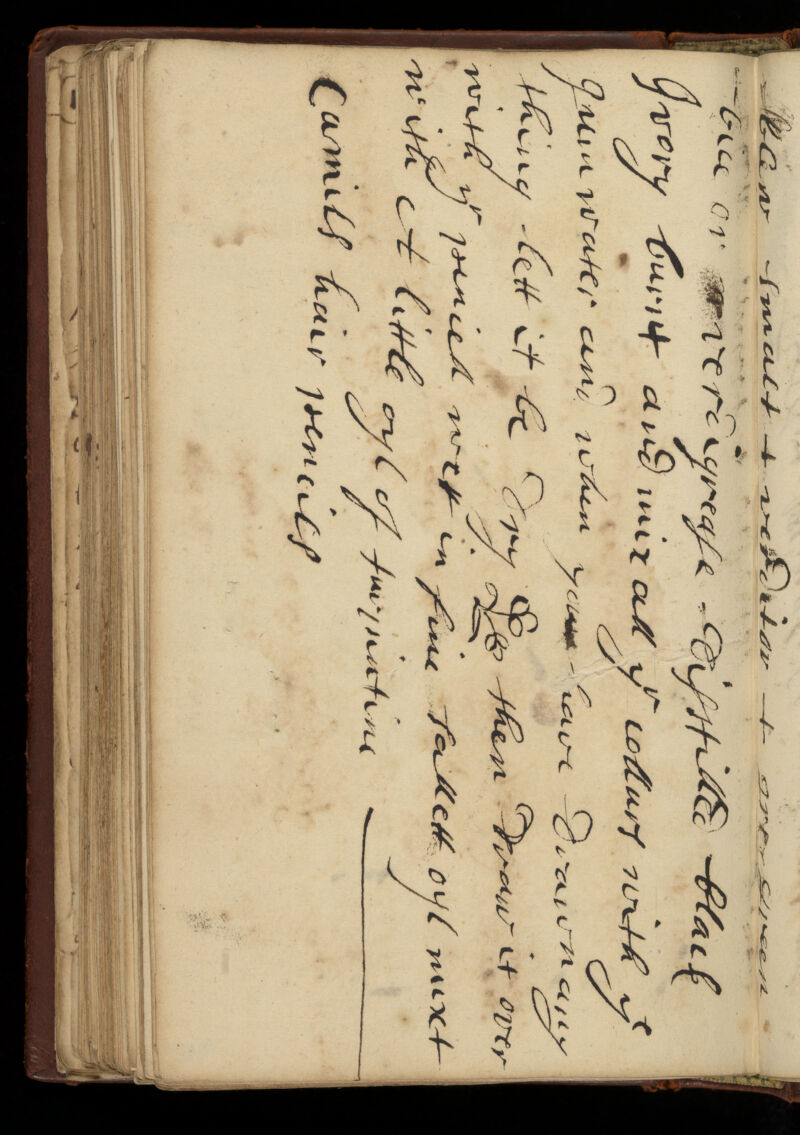 blew smalt + verditor + or green
bice or verdigrease distilled black
Ivory burnt and mix all yͤ collurs with yͤ
gum water and when you have drawn any
thing lett it be dry & then draw it over
with yͤ pencil wet in fine sallett oyl mixt
with A little oyl of turpintine
Camills hair pencills